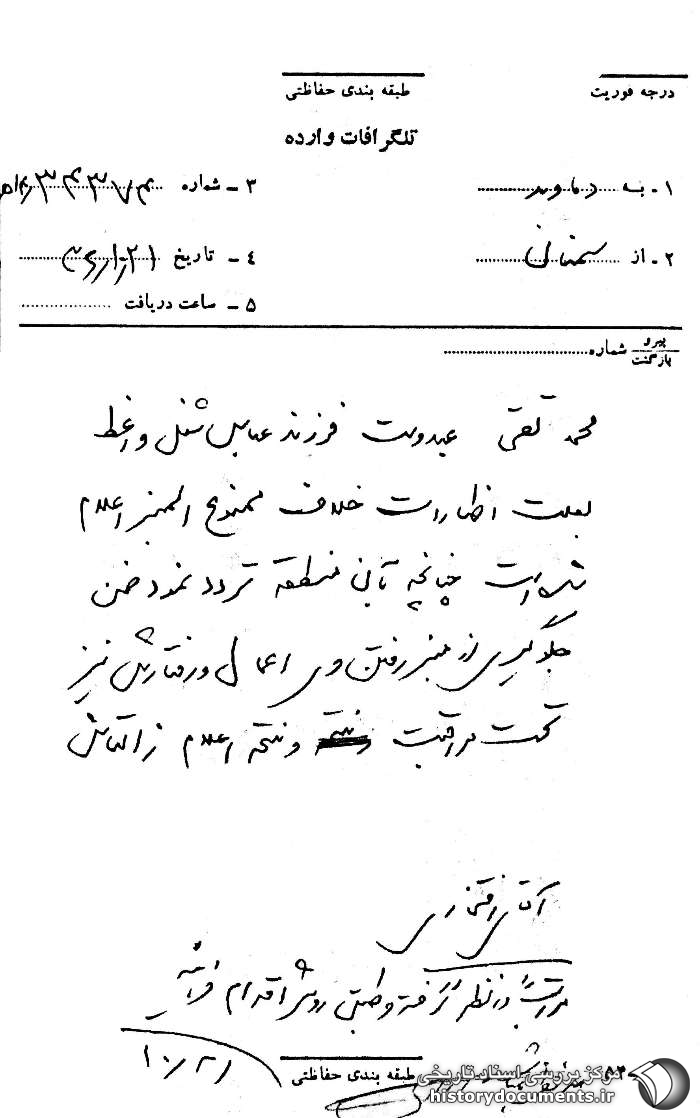 درجه فوریت
طبقه بندی حفاظتی
تلگرافات وارده
۱ - به دماوند
۳ - شماره ۳۴۳۷۴
۲ - از سمنان
۴ - تاریخ
۵ - ساعت دریافت
پیرو
بازگشت
شماره
محمد تقی عبدوست فرزند عباس شغل واعظ
بعلت اظهارات خلاف ممنوع المنبر اعلام
شده است چنانچه بآن منطقه تردد نمود ضمن
جلوگیری از منبر رفتن وی اعمال و رفتارش نیز
تحت مراقبت و نتیجه اعلام
آقای افتخاری
مراتب در نظر گرفته و طبق روش اقدام فرمائید
۱۰/۲۱
طبقه بندی حفاظتی
مرکز بررسی اسناد تاریخی
historydocuments.ir